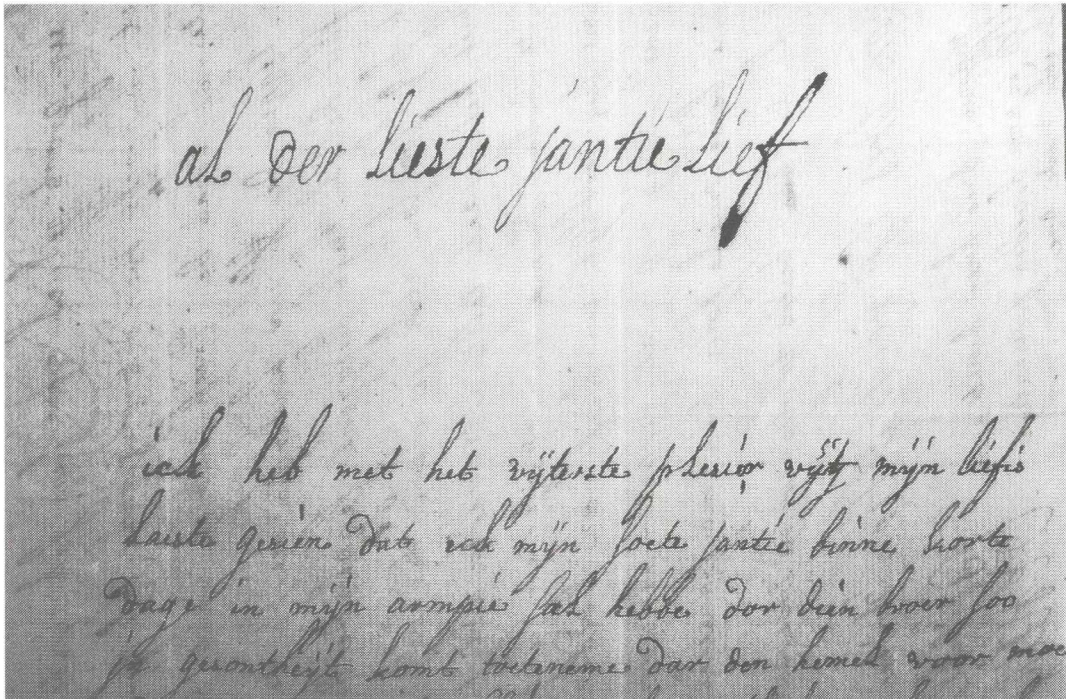 al der lieste jantie lief
ick heb met het vÿterste plesier vÿtt mÿn liefis
laeste gesien dat ick mÿn soete jantie binne korte
dage in mÿn armpie sal hebbe dor dein broer soo
in gesontheÿt komt toeteneme dar den hemel voor moe